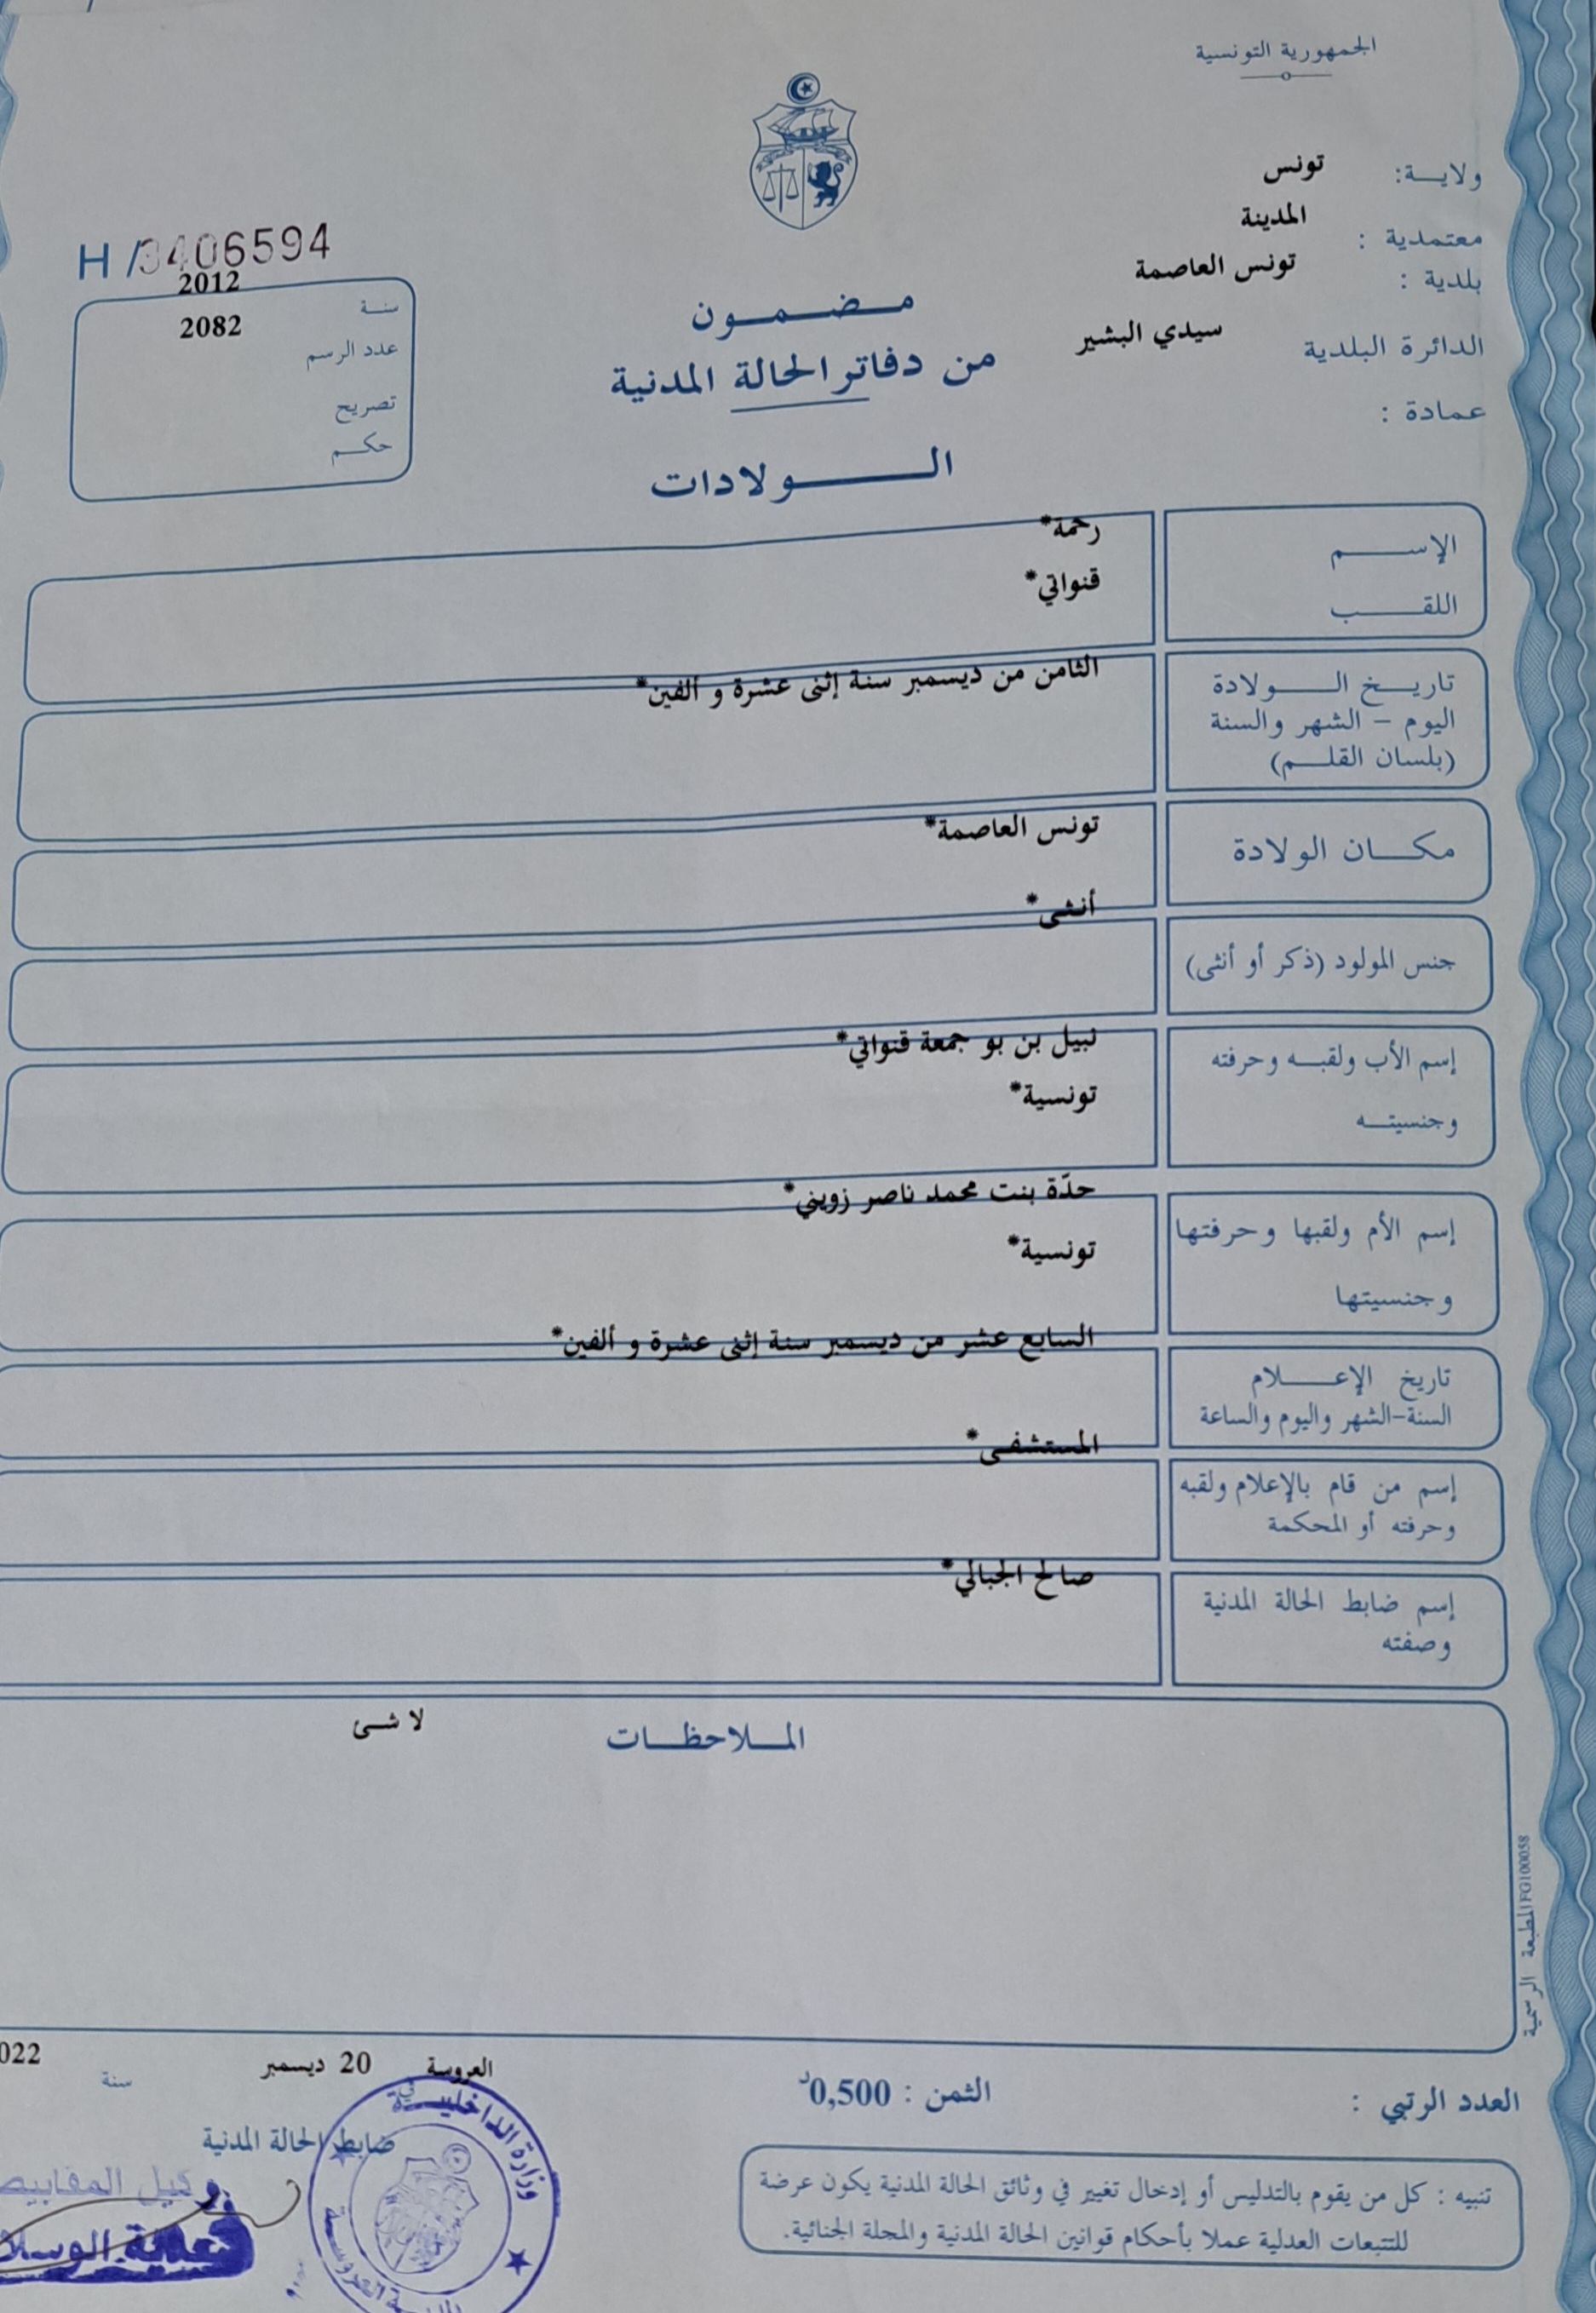 الجمهورية التونسية
ولاية: تونس
معتمدية : المدينة
بلدية : تونس العاصمة
الدائرة البلدية سيدي البشير
عمادة :
H/3406594
2012
سنة
2082
عدد الرسم
تصريح
حكم
مضمون
من دفاتر الحالة المدنية
الولادات
الإسم رحمة*
اللقب قنواتي*
تاريخ الولادة الثامن من ديسمبر سنة إثنى عشرة و ألفين*
اليوم - الشهر والسنة
(بلسان القلم)
مكان الولادة تونس العاصمة*
جنس المولود (ذكر أو أنثى) أنثى*
إسم الأب ولقبه وحرفته نبيل بن بو جمعة قنواتي*
وجنسيته تونسية*
إسم الأم ولقبها وحرفتها حدّة بنت محمد ناصر زويني*
وجنسيتها تونسية*
تاريخ الإعلام السابع عشر من ديسمبر سنة إثنى عشرة و ألفين*
السنة-الشهر واليوم والساعة
إسم من قام بالإعلام ولقبه المستشفى*
وحرفته أو المحكمة
إسم ضابط الحالة المدنية صالح الجبالي*
وصفته
الملاحظات لا شئ
المطبعة الرسمية FG100058
العدد الرتبي : الثمن : 0,500د
العروسة في 20 ديسمبر سنة 022
ضابط الحالة المدنية
وزارة الداخلية
وكيل المقابيض
تنبيه : كل من يقوم بالتدليس أو إدخال تغيير في وثائق الحالة المدنية يكون عرضة
للتتبعات العدلية عملا بأحكام قوانين الحالة المدنية والمجلة الجنائية.